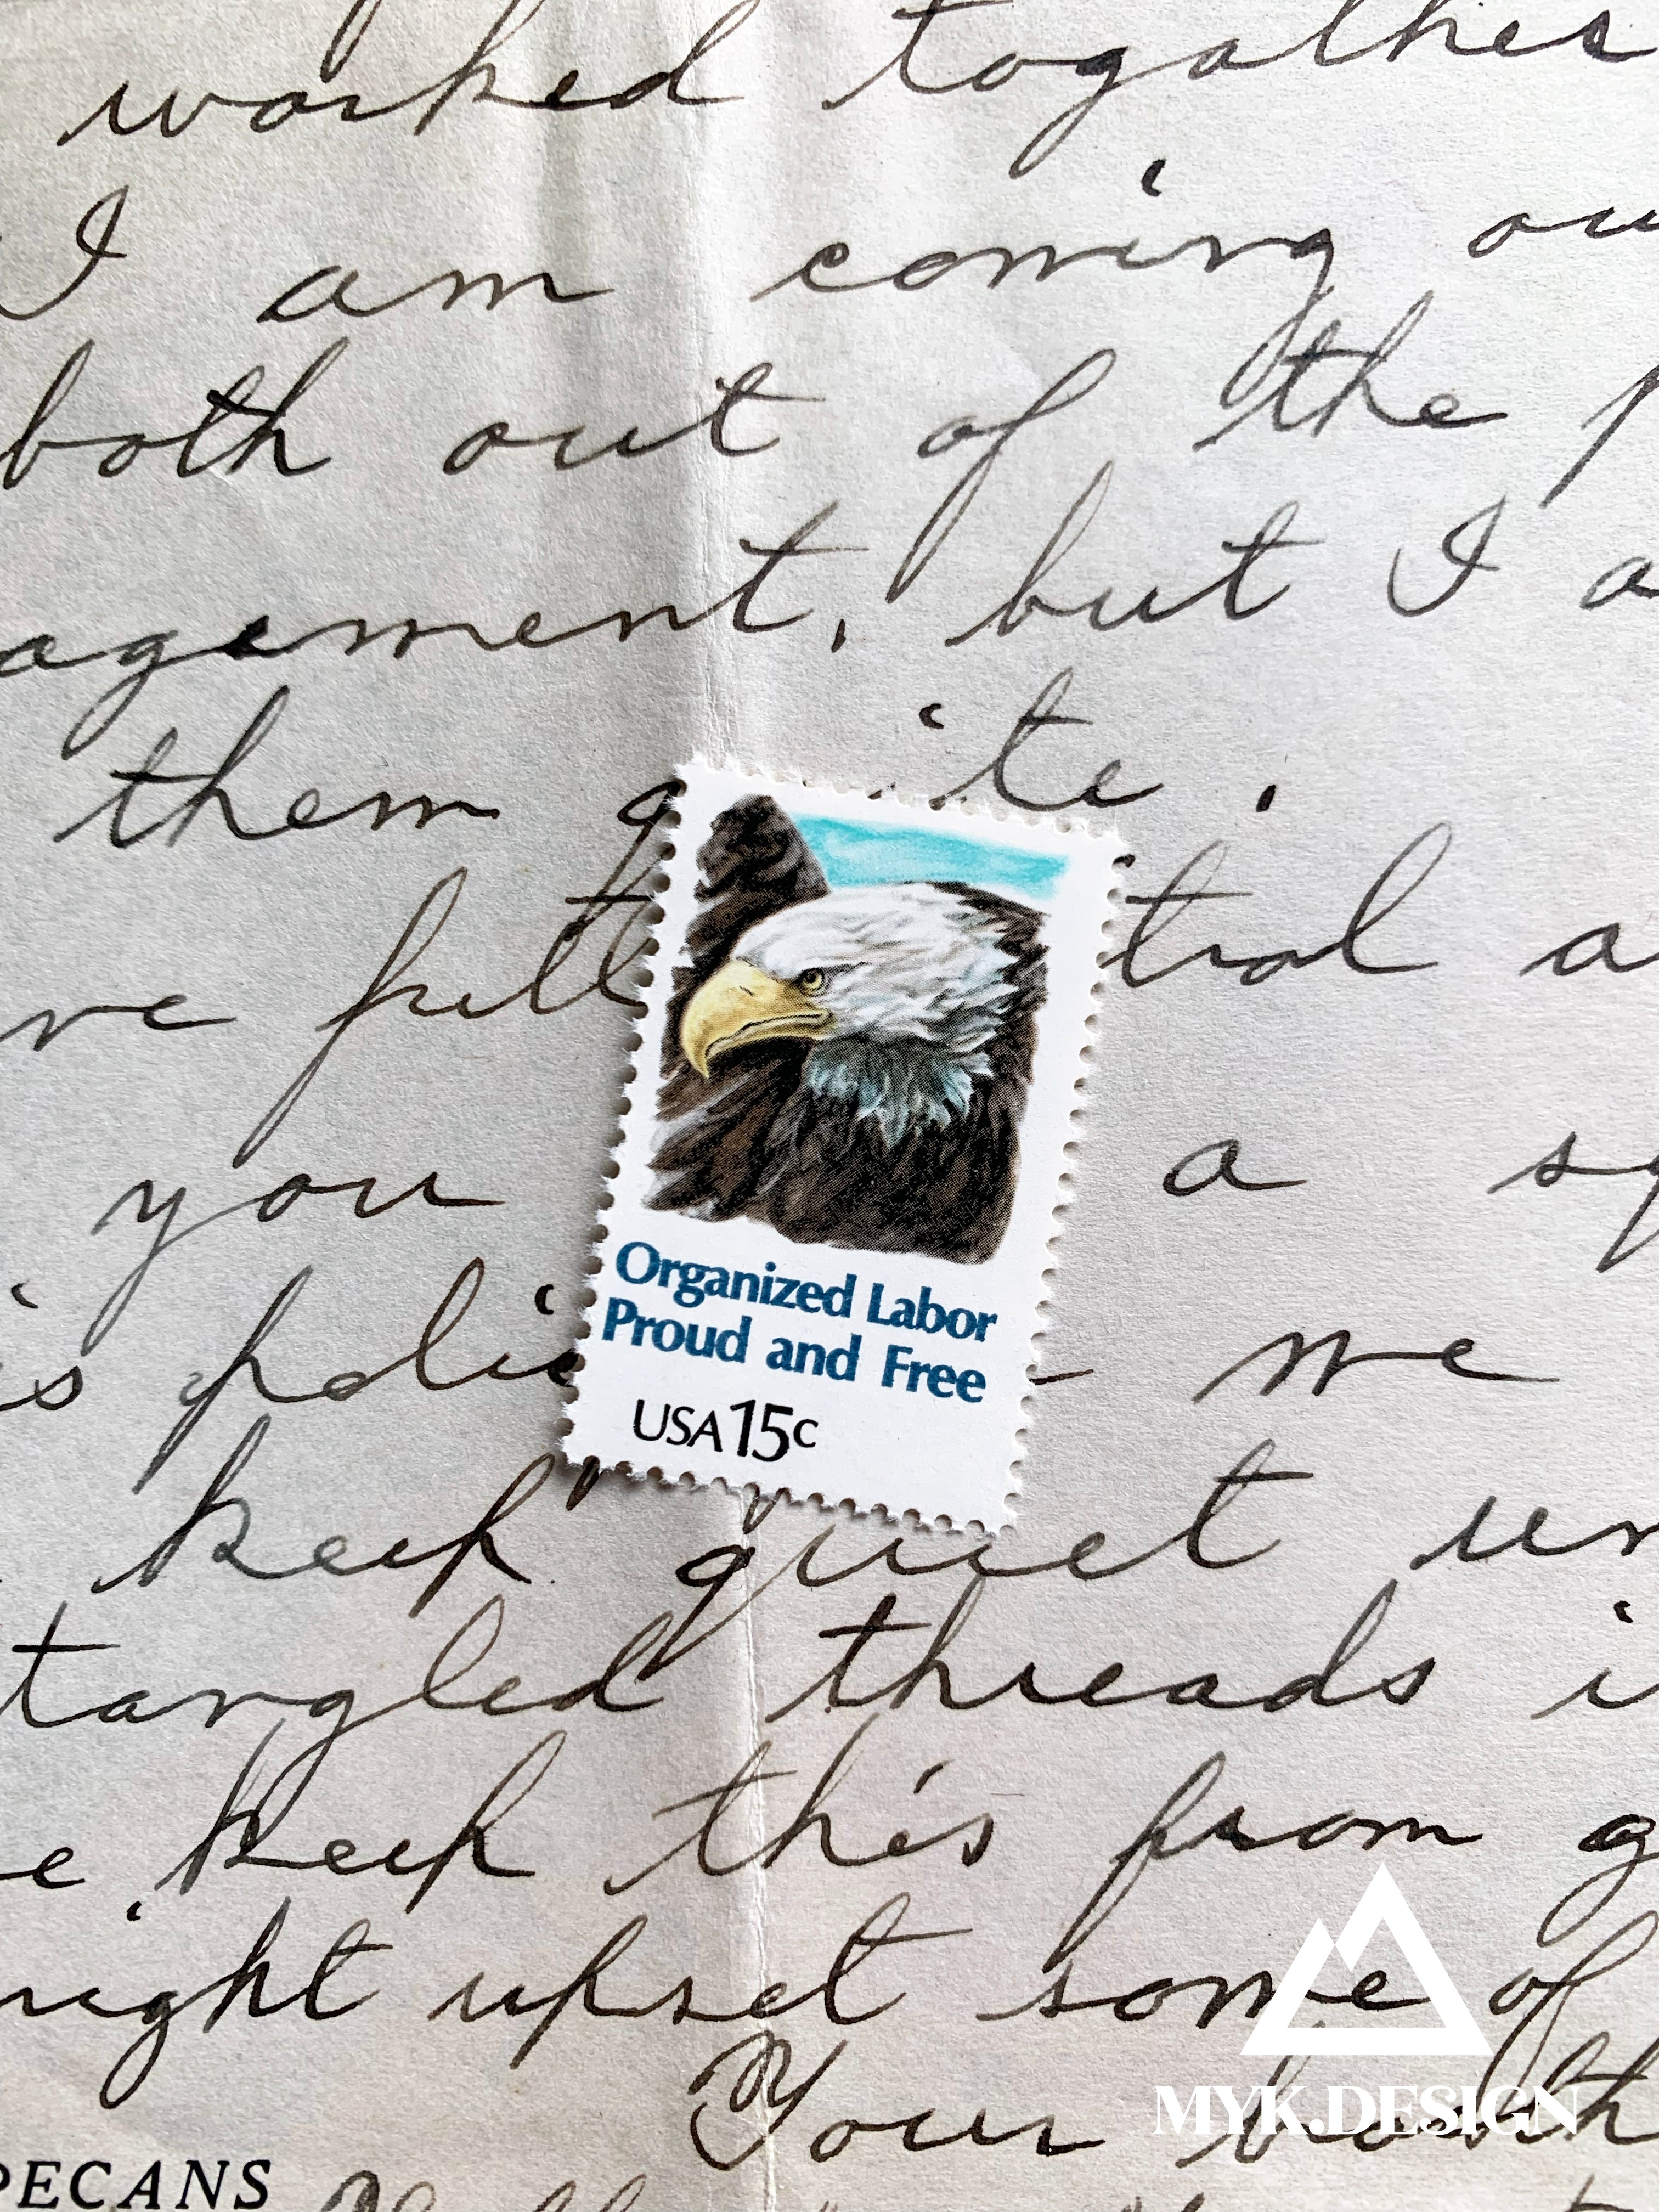 worked togather
I am coming ou
both out of the p
agement, but I a
them q ite.
ve full trol a
you a sq
is polic e we
keep quiet un
tangled threads i
e keep this from g
might upset some of
Your both
PECANS
Organized Labor
Proud and Free
USA 15c
MYK.DESIGN